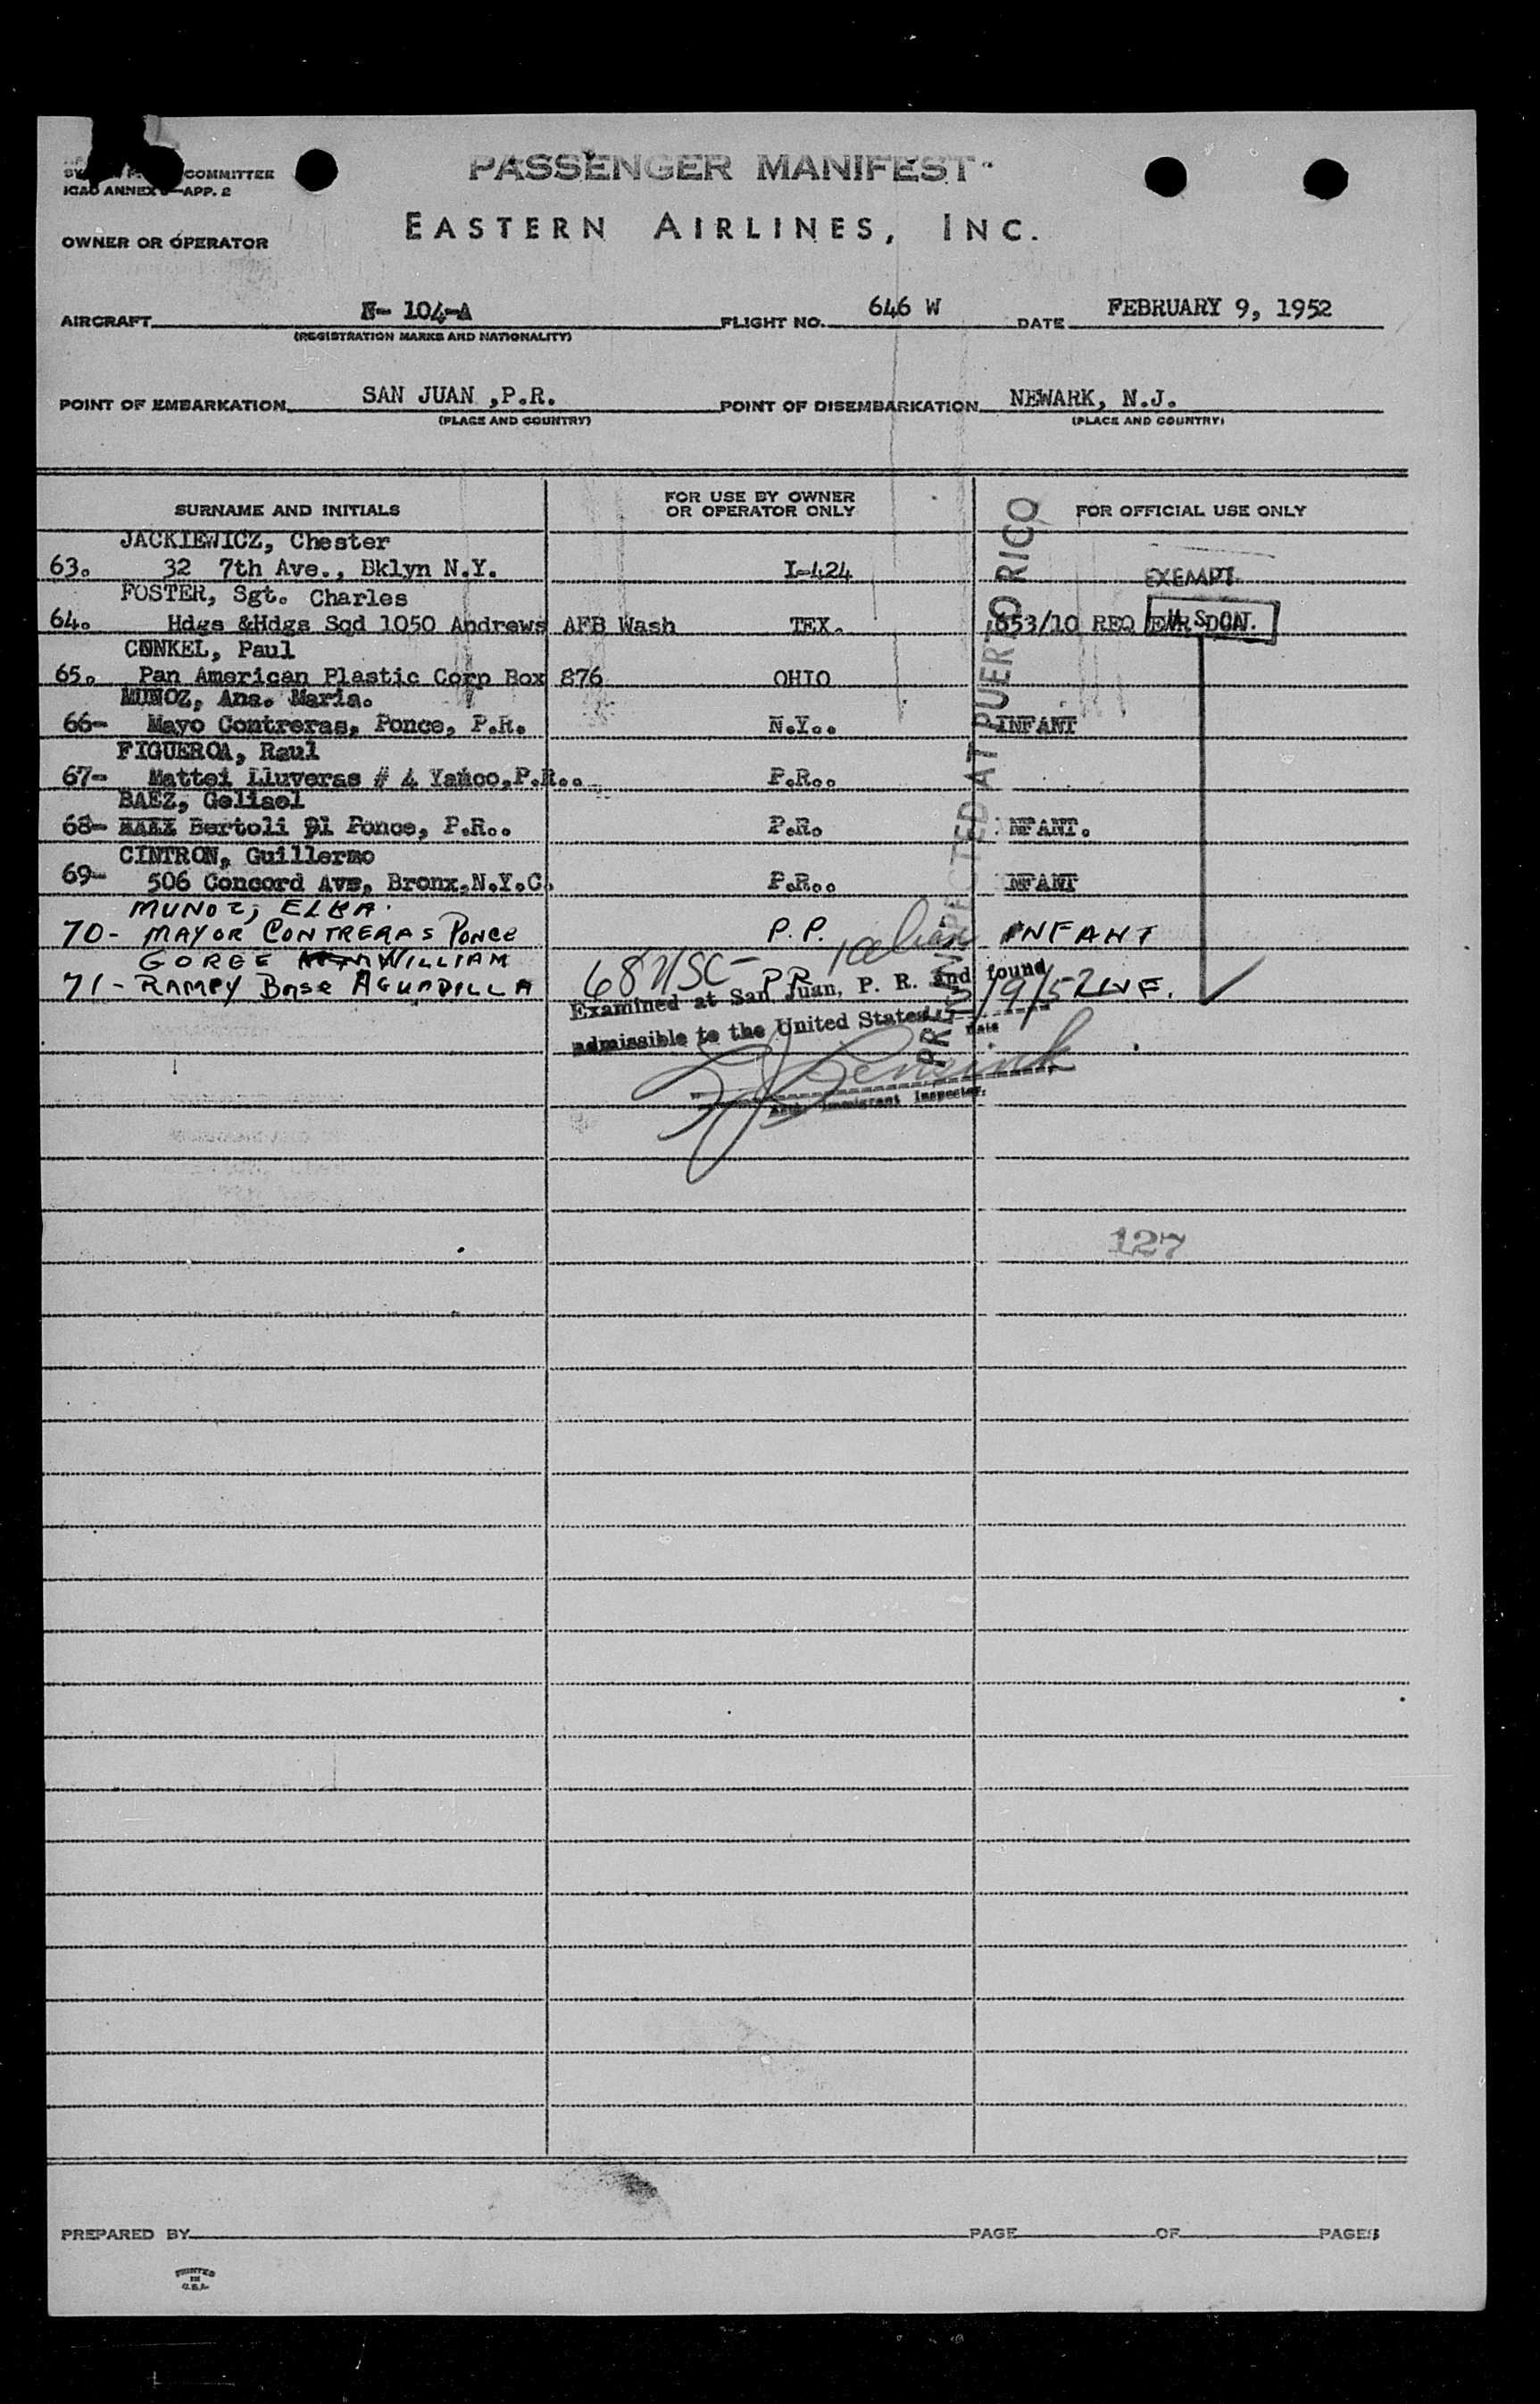 COMMITTEE
ICAO ANNEX APP. 2
PASSENGER MANIFEST
OWNER OR OPERATOR
EASTERN AIRLINES, INC.
AIRCRAFT N- 104-A FLIGHT NO. 646 W DATE FEBRUARY 9, 1952
(REGISTRATION MARKS AND NATIONALITY)
POINT OF EMBARKATION SAN JUAN ,P.R. POINT OF DISEMBARKATION NEWARK, N.J.
(PLACE AND COUNTRY) (PLACE AND COUNTRY)
SURNAME AND INITIALS FOR USE BY OWNER OR OPERATOR ONLY FOR OFFICIAL USE ONLY
JACKIEWICZ, Chester
63. 32 7th Ave., Bklyn N.Y. I-424 EXEMPT
FOSTER, Sgt. Charles
64. Hdgs &Hdgs Sqd 1050 Andrews AFB Wash TEX. 653/10 REQ
CUNKEL, Paul
65. Pan American Plastic Corp Box 876 OHIO
MUNOZ, Ana. Maria.
66- Mayo Contreras, Ponce, P.R. N.Y.. INFANT
FIGUEROA, Raul
67- Mattei Lluveras # 4 Yauco,P.R.. P.R..
BAEZ, Geliael
68- Bertoli 91 Ponce, P.R.. P.R. NFANT.
CINTRON, Guillermo
69- 506 Concord Ave, Bronx,N.Y.C. P.R.. NFANT
MUNOZ, ELBA.
70- MAYOR CONTRERAS PONCE P.P. INFANT
GORGE WILLIAM
71- RAMEY Base AGUADILLA P.R. INF.
68 USC-
Examined at San Juan, P. R. and found
admissible to the United States 2/9/52
Date
Immigrant Inspector.
PRE INSPECTED AT PUERTO RICO
127
PREPARED BY PAGE OF PAGES
PRINTED
IN
U.S.A.